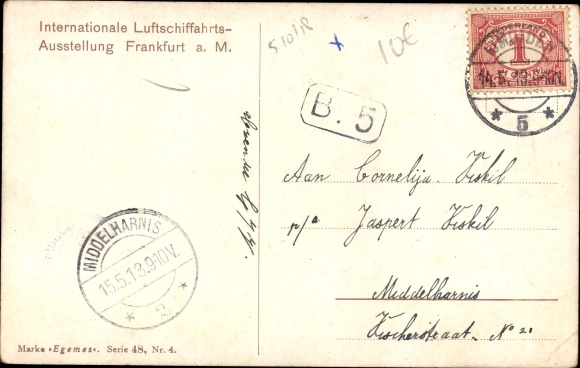 Internationale Luftschiffahrts-
Ausstellung Frankfurt a. M.
51018
10€
NEDERLAND
1
14.5.13.9-10V.
5
B. 5
Aan Cornelija Kiskil
p/a Jaspert Kiskil
Middelharnis
Visscherstraat No 20
MIDDELHARNIS
15.5.13.9-10V.
2
Marke »Egemes«. Serie 48, Nr. 4.